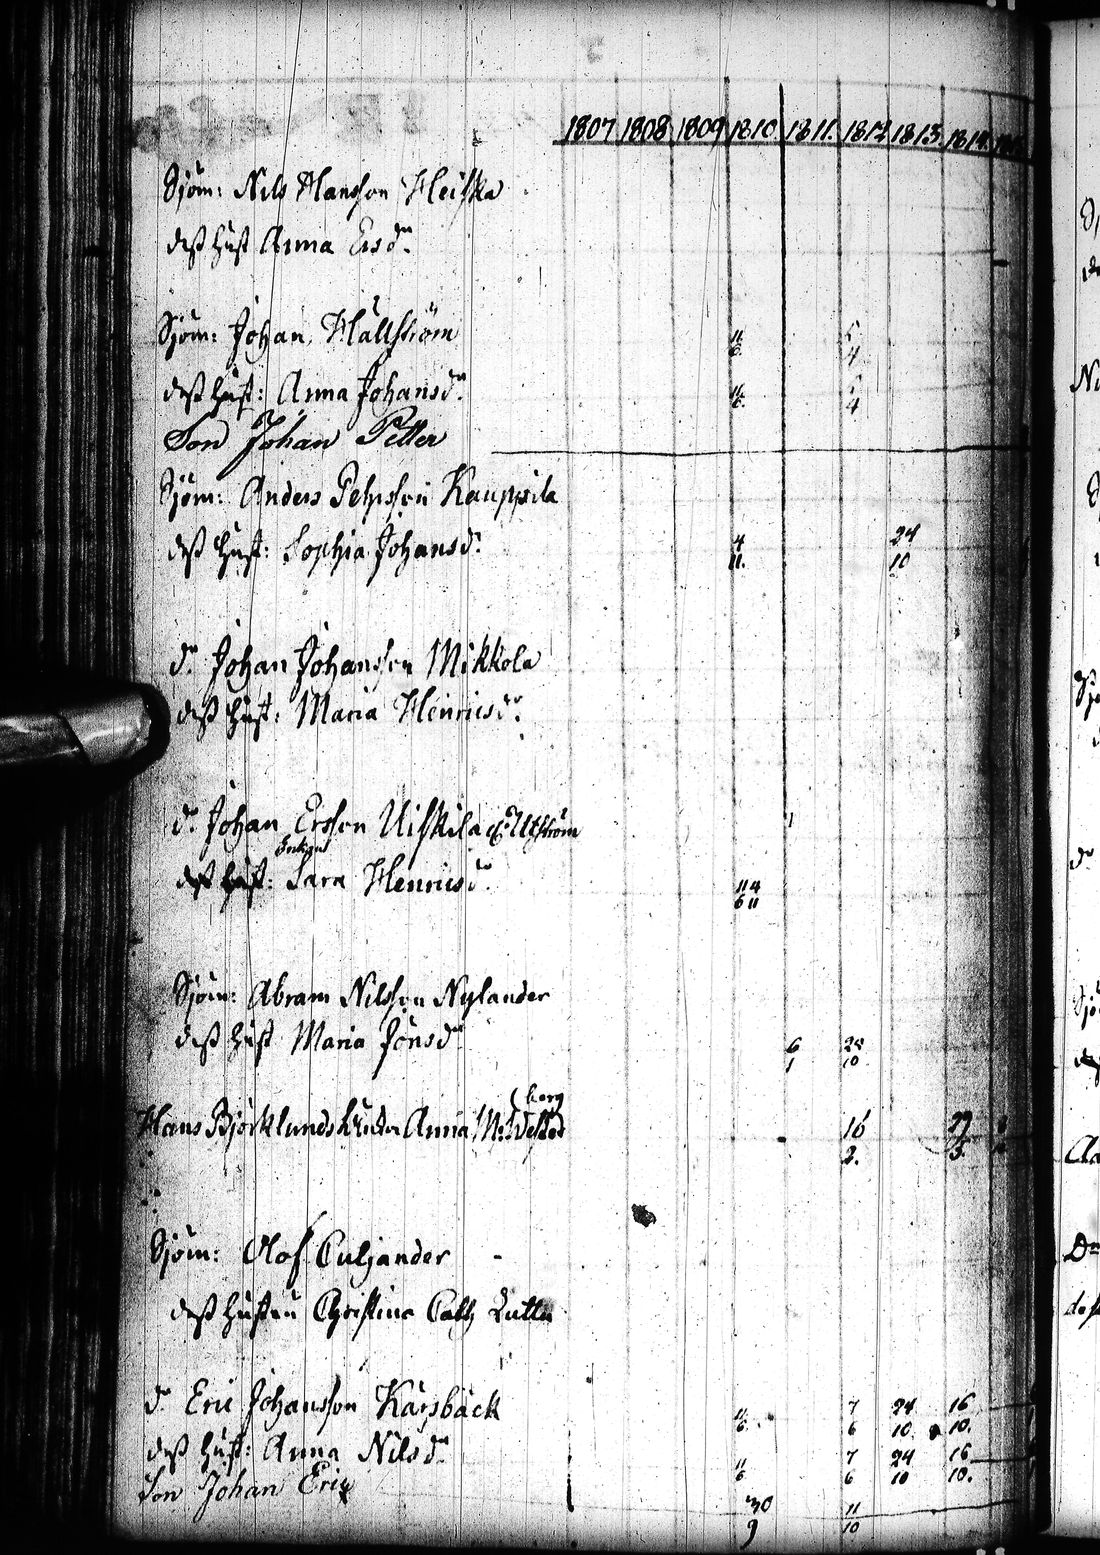 1807 1808 1809 1810 1811. 1812 1813. 1814.
Sjöm: Nils Hansson Heiska
deß hust Anna Ersdr.
Sjöm: Johan Hällström 11/6. 5/4
deß hust: Anna Johansdr. 11/6. 5/4
Son Johan Petter
Sjöm: Anders Pehrsson Kauppila
deß hust: Sophia Johansdr. 4/11. 24/10
do Johan Johansson Mikkola
deß hust: Maria Henricsdr.
do Johan Ersson Uiskila Utström
Enkan
deß hust: Sara Henricsdr. 11/6 4/11
Sjöm: Abram Nilsson Nylander
deß hust Maria Jönsdr 6/1 28/10
berg
Hans Björklunds Enka Anna M: Wester 16/2. 29/5.
Sjöm: Olof Culjander -
deß hustru Christina Cath
do Eric Johansson Kärsbäck 11/6. 7/6 24/10 16/10.
deß hust: Anna Nilsdr 11/6 7/6 24/10 16/10.
Son Johan Eric 30/9 11/10